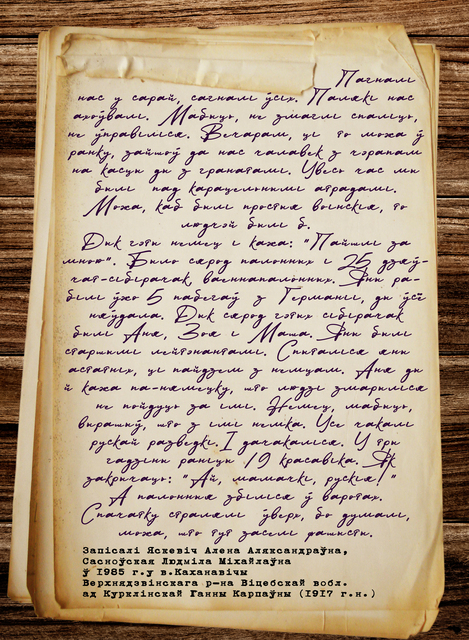 Пагналі
нас у сарай, сагналі ўсіх. Палякі нас
ахоўвалі. Мабыць, не змаглі спаліць,
не ўправіліся. Вечарам, ці то можа ў
ранку, зайшоў да нас чалавек з чэрапам
на касцы ды з гранатамі. Увесь час мы
былі пад карацельнымі атрадамі.
Можа, каб былі простыя воінскія, то
людзей былі б.
Дык гэты немец і кажа: "Пайшлі за
мною". Было сярод палонных і 25 дзяў-
чат-сібірачак, ваеннапалонных. Яны ра-
білі ўжо 5 пабегаў з Германіі, ды ўсё
няўдала. Дык сярод гэтых сібірачак
былі Аня, Зоя і Маша. Яны былі
старшымі лейтэнантамі. Спыталіся яны
астатніх, ці пайдзем з немцам. Аня ды
й кажа па-нямецку, што людзі змарыліся
не пойдуць за імі. Немец, мабыць,
вырашыў, што з імі немка. Усе чакалі
рускай разведкі. І дачакаліся. У тры
гадзіны раніцы 19 красавіка. Як
закрычаць: "Ай, мамачкі, рускія!"
А палонныя збегліся ў варотах.
Спачатку стралялі ўверх, бо думалі,
можа, што тут заселі фашысты.
Запісалі Яскевіч Алена Аляксандраўна,
Сасноўская Людміла Міхайлаўна
ў 1985 г.у в.Каханавічы
Верхнядзвінскага р-на Віцебскай вобл.
ад Курклінскай Ганны Карпаўны (1917 г.н.)